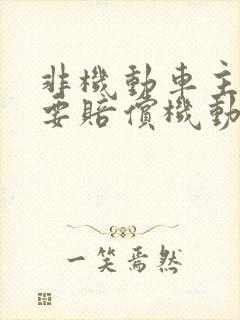 非機動車主
要賠償機動
一笑焉然